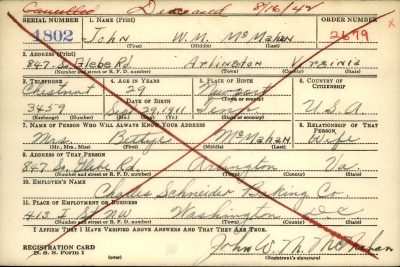 Cancelled Deceased 8/16/42
SERIAL NUMBER 1. NAME (Print) ORDER NUMBER
1802 John W. M. McMahan 2679
(First) (Middle) (Last)
2. ADDRESS (Print)
847 S. Glebe Rd. Arlington Virginia
(Number and street or R. F. D. number) (Town) (County) (State)
3. TELEPHONE 4. AGE IN YEARS 5. PLACE OF BIRTH 6. COUNTRY OF CITIZENSHIP
Chestnut 29 Newport
DATE OF BIRTH (Town or county)
3459 Sept 29, 1911 Tenn U.S.A.
(Exchange) (Number) (Mo.) (Day) (Yr.) (State or country)
7. NAME OF PERSON WHO WILL ALWAYS KNOW YOUR ADDRESS 8. RELATIONSHIP OF THAT PERSON
Mrs. McMahan Wife
(Mr., Mrs., Miss) (First) (Middle) (Last)
9. ADDRESS OF THAT PERSON
847 S. Glebe Rd. Arlington Va.
(Number and street or R. F. D. number) (Town) (County) (State)
10. EMPLOYER'S NAME
Charles Schneider Baking Co.
11. PLACE OF EMPLOYMENT OR BUSINESS
413 St NW Washington D.C.
(Number and street or R. F. D. number) (Town) (County) (State)
I AFFIRM THAT I HAVE VERIFIED ABOVE ANSWERS AND THAT THEY ARE TRUE.
REGISTRATION CARD John W. M. McMahan
D. S. S. Form 1 (Registrant's signature)